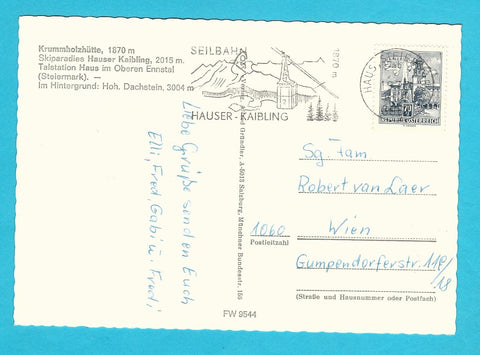 Krummholzhütte, 1870 m
Skiparadies Hauser Kaibling, 2015 m.
Talstation Haus im Oberen Ennstal
(Steiermark). —
Im Hintergrund: Hoh. Dachstein, 3004 m
SEILBAHN
1870 m
HAUSER-KAIBLING
REPUBLIK ÖSTERREICH
Liebe Grüße senden Euch
Elli, Fred, Gabi u. Fredi
Gründler, A-5013 Salzburg, Münchner Bundesstr. 155
Sg. Fam
Robert van Laer
1060 Wien
Postleitzahl
Gumpendorferstr. 119/18
(Straße und Hausnummer oder Postfach)
FW 9544